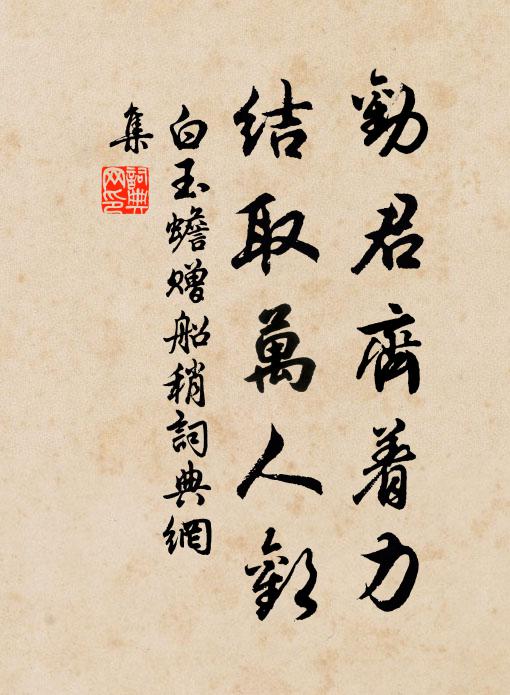 勸君齊着力
結取萬人歡
白玉蟾赠船稍詞典網
集
詞典
网印